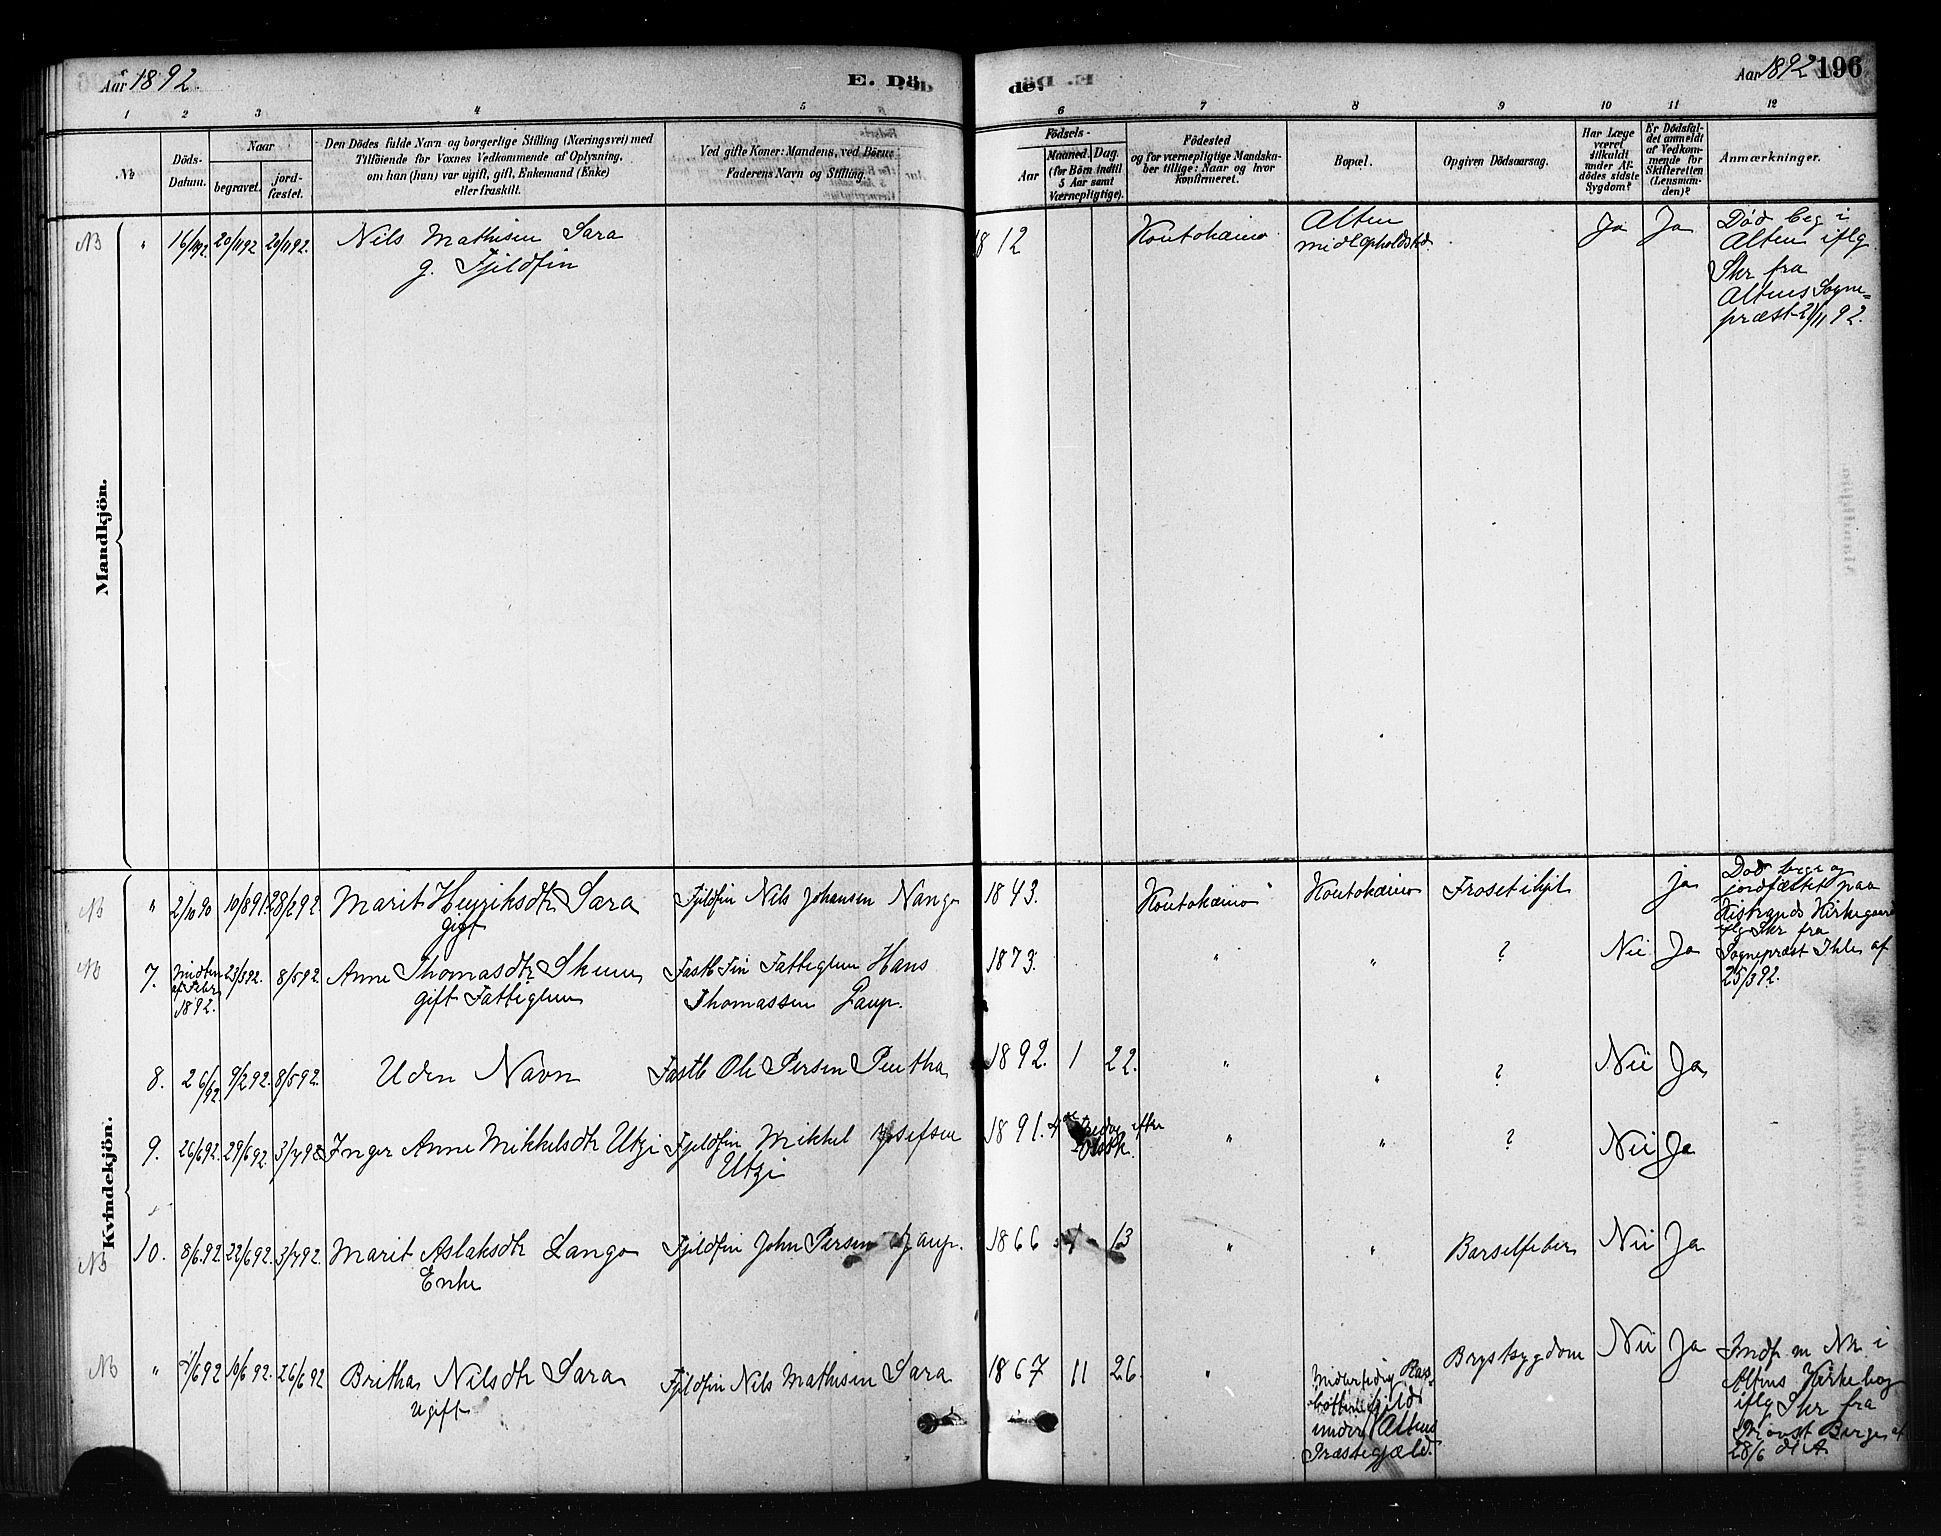 Aar 1892.
E. Dö
de.
Aar 1892
196
1 2 3 4 5 6 7 8 9 10 11 12
No
Döds-
Datum.
Naar
begravet.
jord-
fæstet.
Den Dödes fulde Navn og borgerlige Stilling (Næringsvei) med
Tilföiende for Voxnes Vedkommende af Oplysning,
om han (hun) var ugift, gift, Enkemand (Enke)
eller fraskilt.
Ved gifte Koner: Mandens, ved Börns:
Faderens Navn og Stilling.
Födsels-
Aar
Maaned. Dag.
(for Börn indtil
5 Aar samt
Værnepligtige).
Födested
og for værnepligtige Mandska-
ber tillige: Naar og hvor
konfirmeret.
Bopæl.
Opgiven Dödsaarsag.
Har Læge
været
tilkaldt
under Af-
dödes sidste
Sygdom?
Er Dödsfal-
det anmeldt
af Vedkom-
mende for
Skifteretten
(Lensman-
den)?
Anmærkninger.
Mandkjön.
NB " 16/11 92. 20/11 92 20/11 92.
Nils Mathisen Sara
g. Fjeldfin
1812
Koutokæino
Alten
midl Opholdsted
Ja Ja
Død beg i
Alten iflg
Skr fra
Altens Sogne=
præst 21/11 92.
Kvindekjön.
NB " 2/10 90 10/8 91. 28/2 92.
Marit Henriksdtr Sara
gift
Fjeldfin Nils Johansen Nango
1843.
Koutokæino
Koutokæino
Froset ihjel
ja
Død begr og
jordfæstet paa
Kistrands Kirkegaard
iflg Skr fra
Sognepræst Ihle af
25/3 92.
NB 7. Midten
af Febr
1892. 23/3 92. 8/5 92.
Anne Thomasdtr Skum
gift Fattiglem
Fastb Fin Fattiglem Hans
Thomassen Gaup.
1873.
" " ? Nei Ja
8. 2 6/92 9/2 92. 8/5 92.
Uden Navn
Fastb Ole Persen Pentha
1892. 1 22.
" " ? Nei Ja
9. 26/6 92. 29/6 92. 3/7 92
Inger Anne Mikkelsdtr Utzi
Fjeldfin Mikkel Josefsen
Utzi
1891. efter
" " ? Nei Ja
NB 10. 8/6 92. 22/6 92. 3/7 92.
Marit Aslaksdtr Lango
Enke
Fjeldfin John Persen Gaup.
1866 13
" " Barselfeber Nei Ja
NB " 1/6 92 10/6 92. 26/6 92
Britha Nilsdtr Sara
ugift
Fjeldfin Nils Mathisen Sara
1867 11 26.
"
under Altens
Præstegjæld.
Brystsygdom
Nei Ja
Indf m Nr. i
Altens Kirkebog
iflg Skr fra
Provst Berge af
28/6 d A